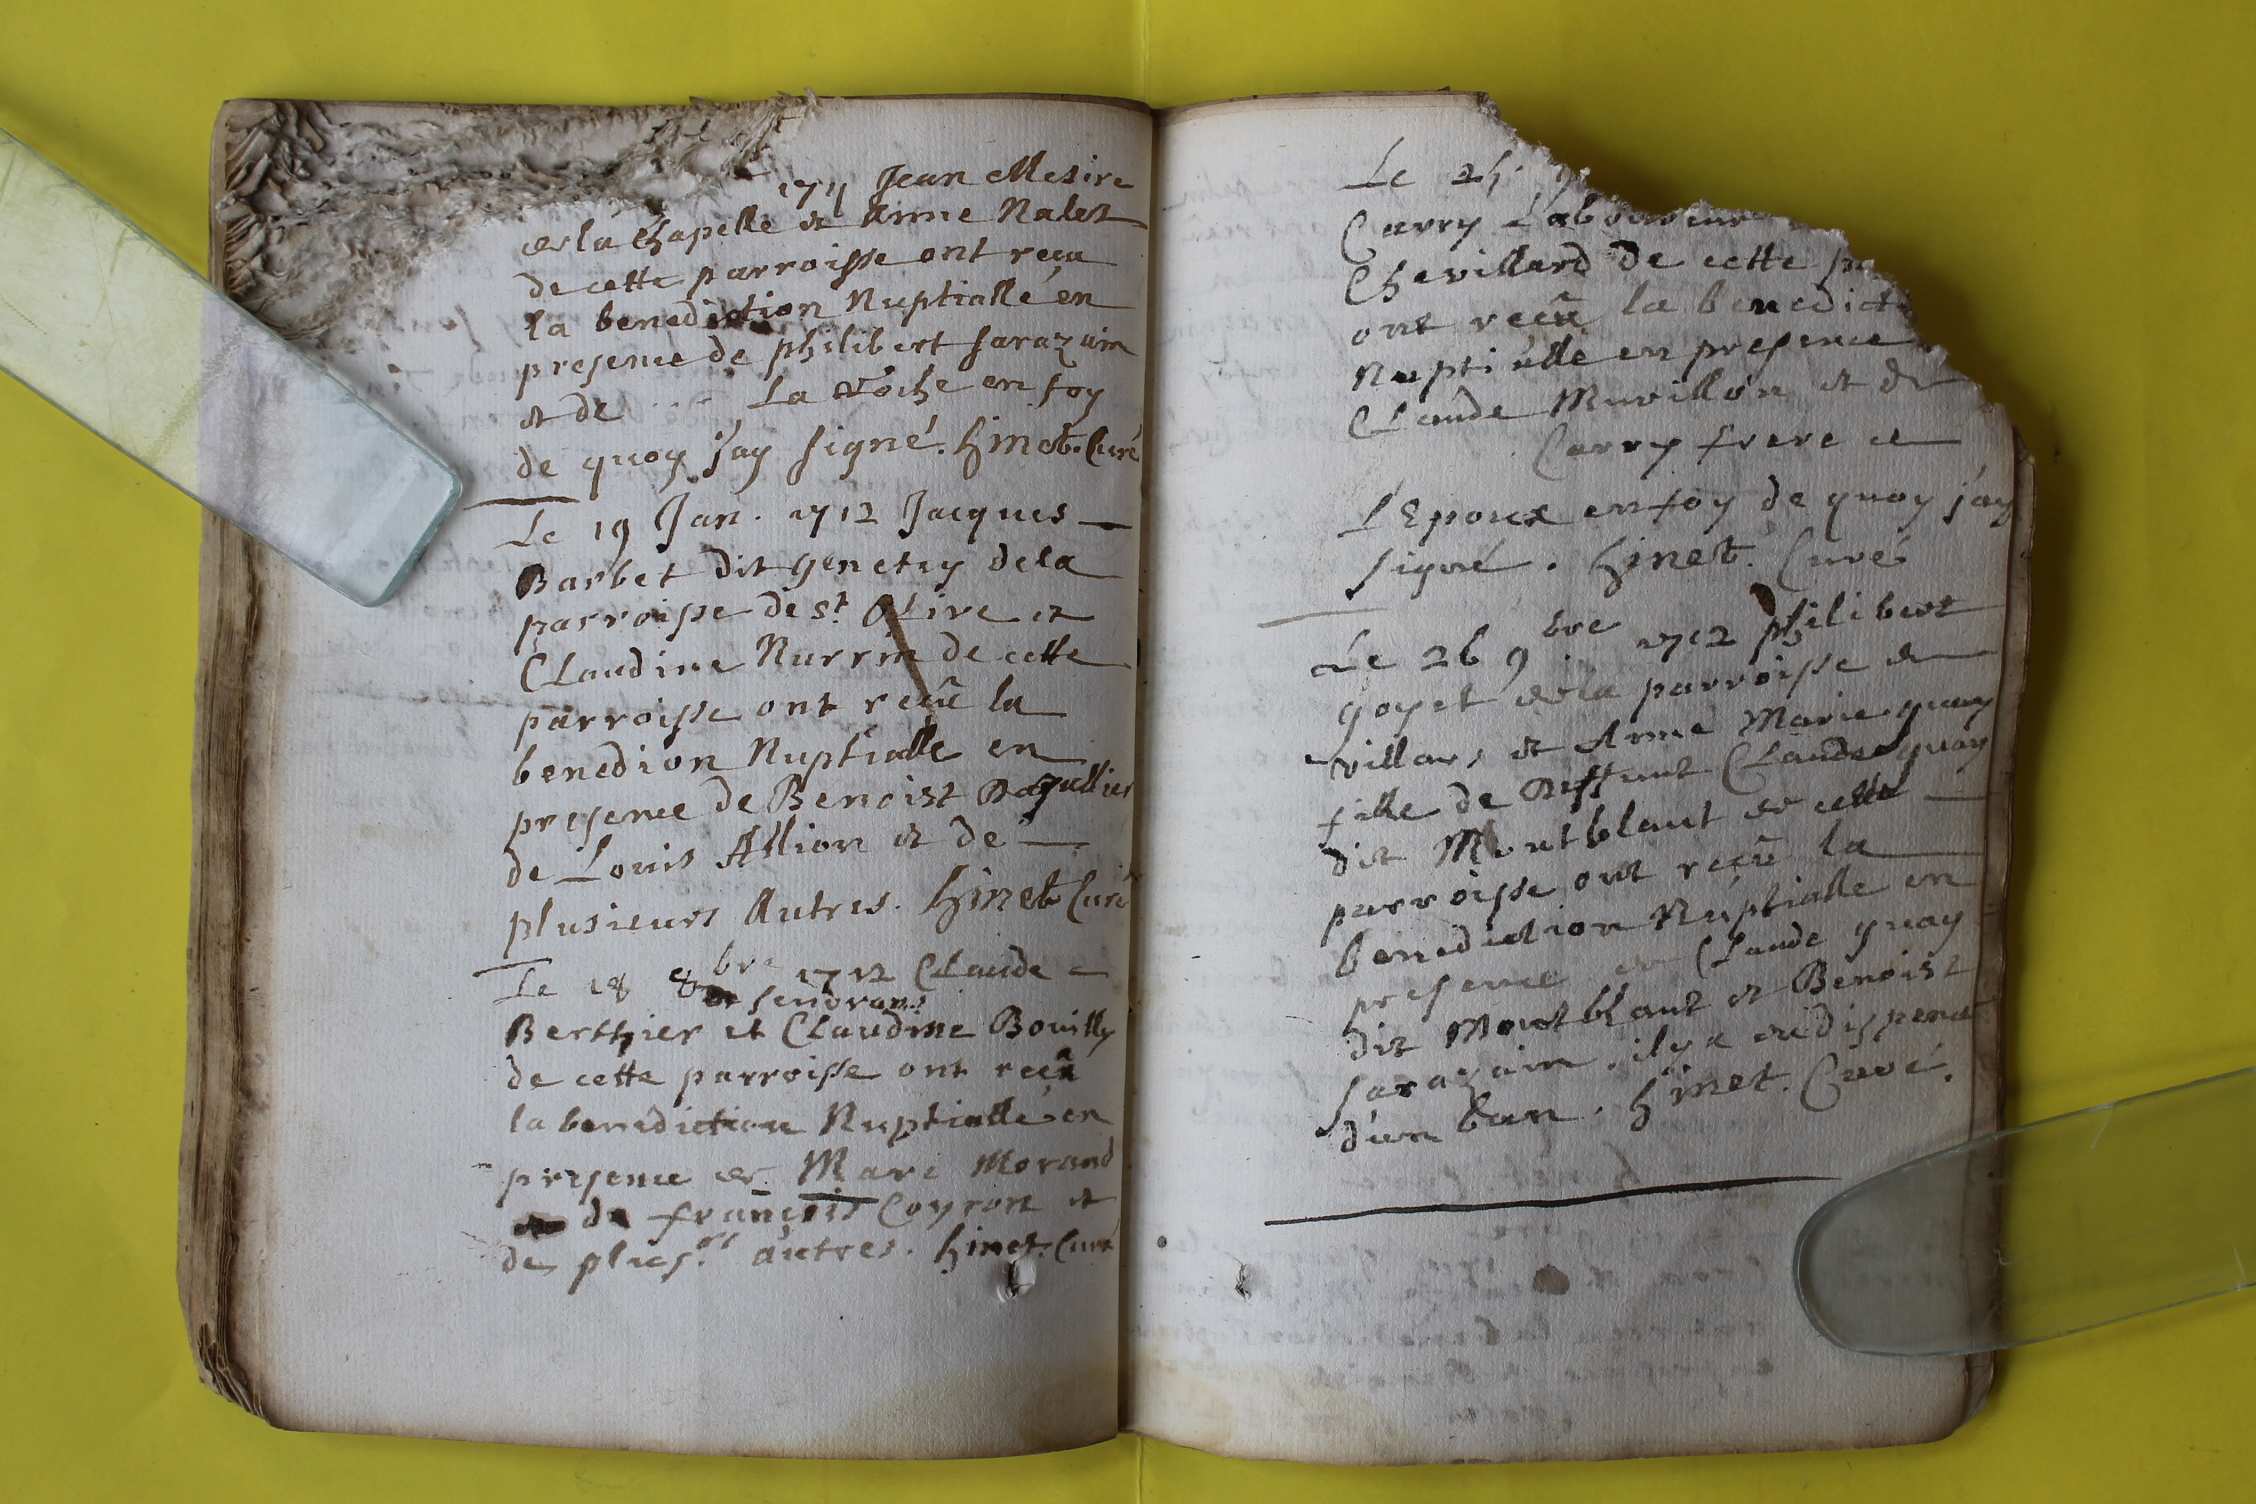 1711 Jean Mesire
de la Chapelle et Anne Nalet
de cette parroisse ont reçu
la benediction Nuptialle en
presence de philibert sarazain
et de ... La Voche en foy
de quoy j'ay signé. hinet. Curé
Le 19 Jan. 1712 Jacques
Barbet dit genetey de la
parroisse de st. Olive et
Claudine Nurrin de cette
parroisse ont reçû la
benedion Nuptialle en
presence de Benoist
de Louis Allion et de
plusieurs Autres. hinet Curé
Le 18 8bre 1712 Claude
Berthier et Claudine Bouilly
de cette parroisse ont reçû
la benediction Nuptialle en
presence de Marc Morand
de françois Coyron et
de plusrs. autres. hinet. Curé
Le
Carry Laboureur
Chevillard de cette
ont reçû la benedict
Nuptialle en presence
Claude Muvillon et de
Carry frere de
L'Epoux en foy de quoy j'ay
signé. hinet. Curé
Le 26 9bre 1712 philibert
goyet de la parroisse de
villars et Anne Marie quay
fille de Deffunt Claude quay
dit Montblant de cette
parroisse ont reçû la
benediction Nuptialle en
presence de Claude quay
dit Montblant et Benoist
sarazain. il y a eu dispense
d'un ban. hinet. Curé.